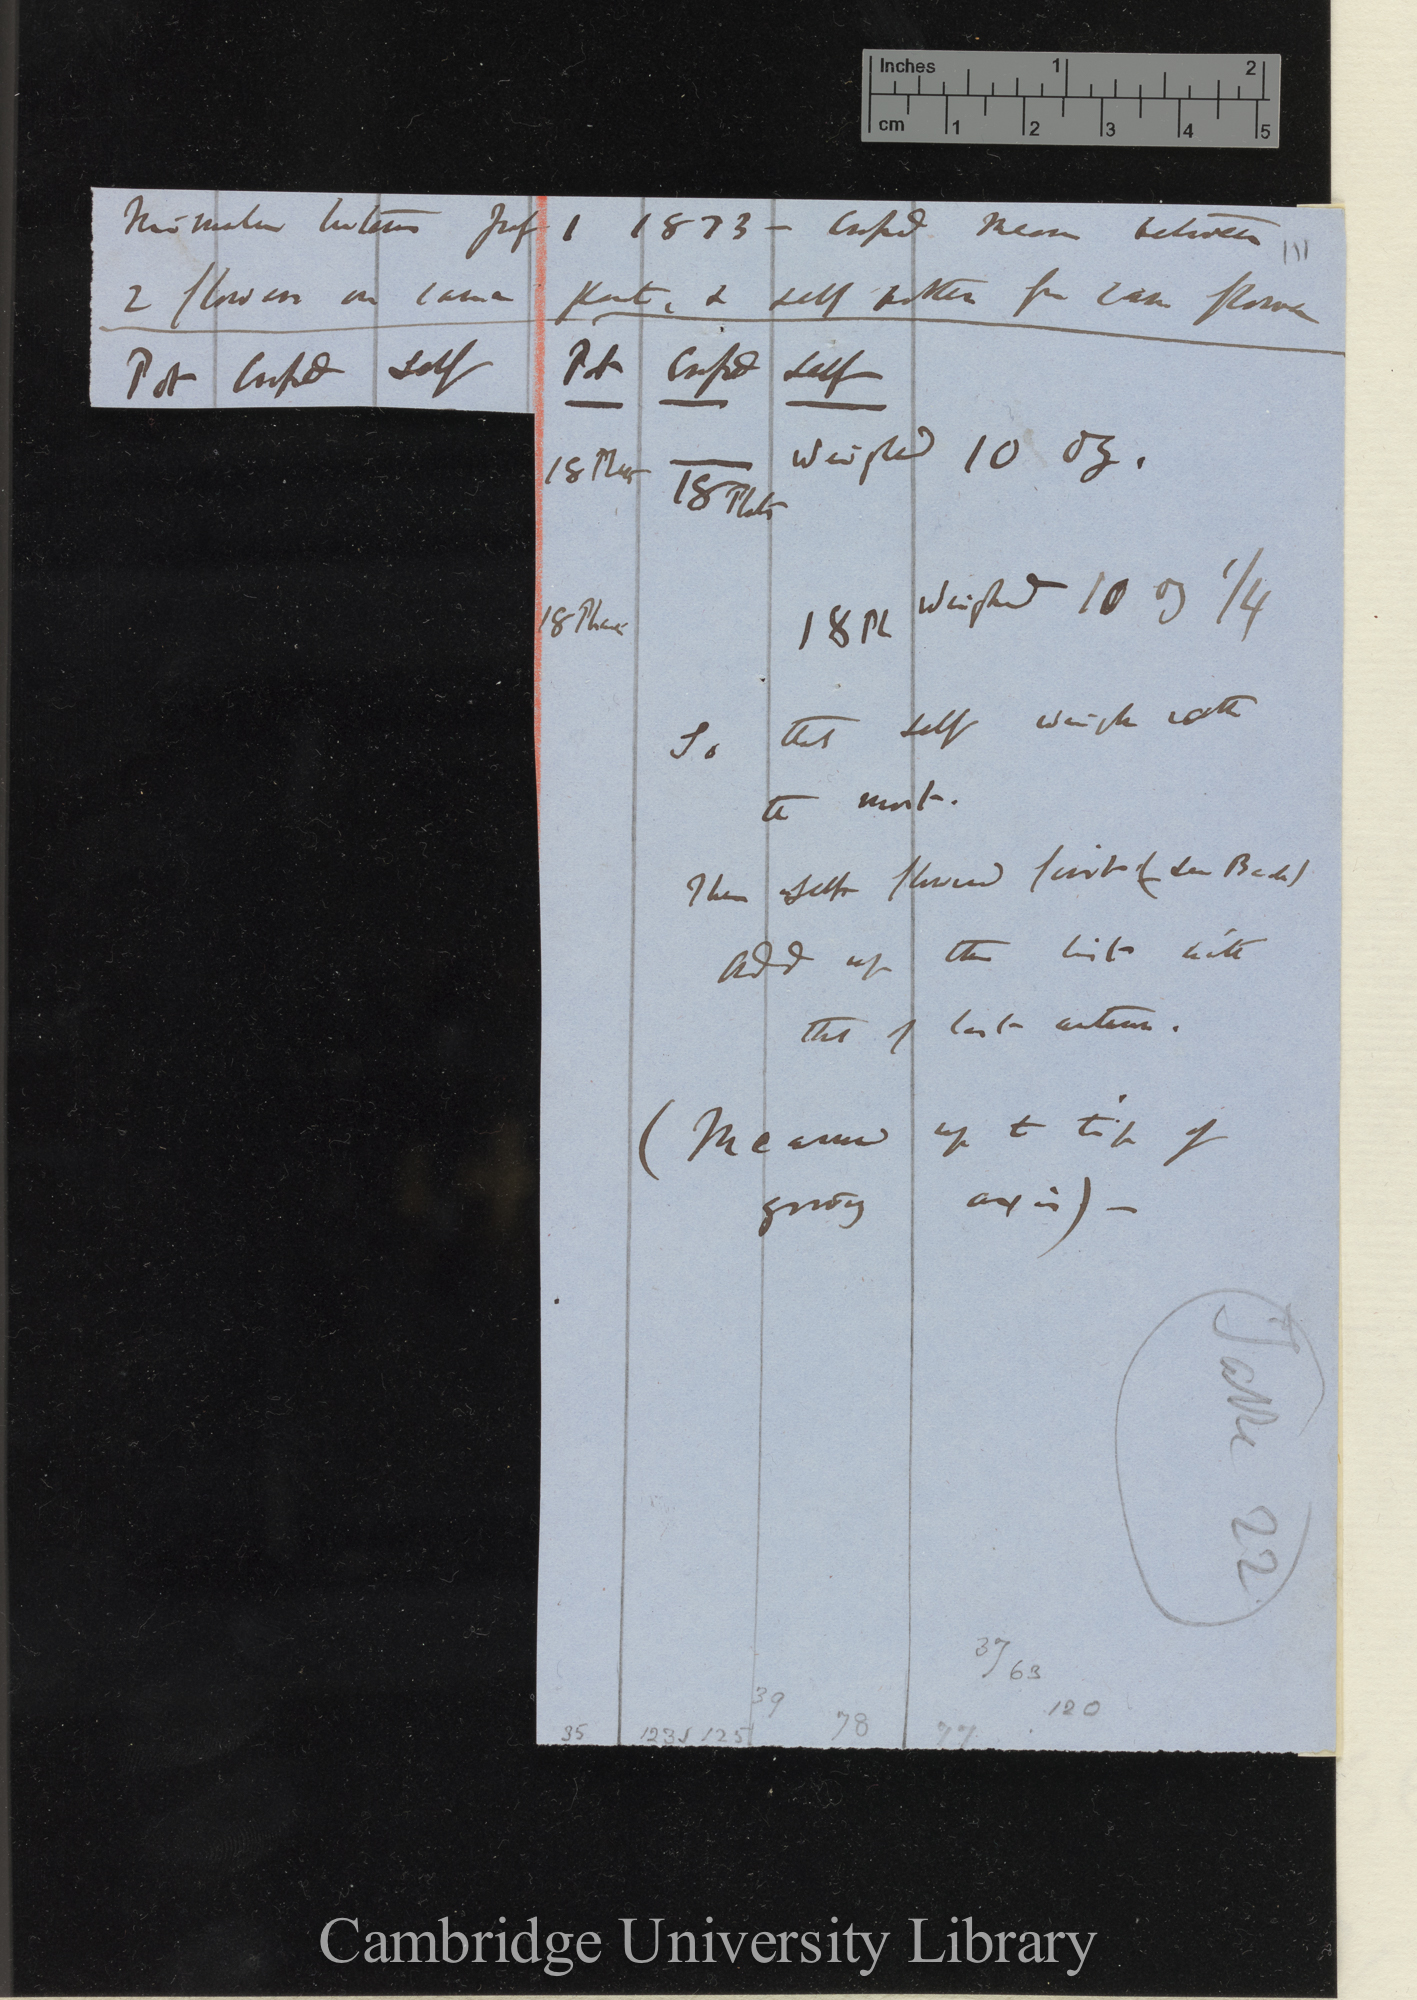 Inches 1 2
cm 1 2 3 4 5
Mimulus luteus July 1 1873 – Crossed means between
2 flowers on same plant, & self pollen from same flower
Pot Crossed Self Pot Crossed Self
18 Plants — Weighed 10 oz.
18 Plants
18 Plants 18 Pl Weighed 10 oz 1/4
So that self weigh rather
the most.
Then selfs flowered first (see Back)
Add up this list with
that of last autumn.
(Measured up to tip of
growing axis) –
Table 22
37/63
39 120
35 123 125 78 77
Cambridge University Library